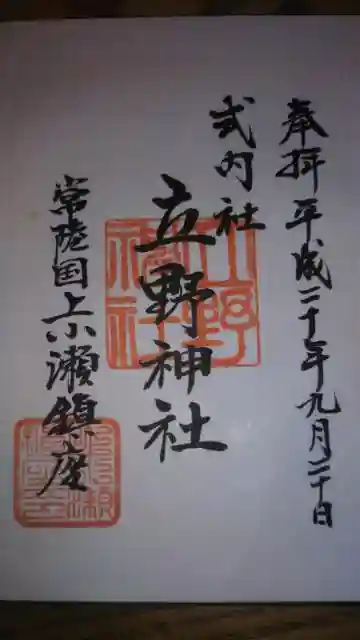 奉拝 平成二十七年九月二十日
式内社
立野神社
常陸国上小瀬鎮座